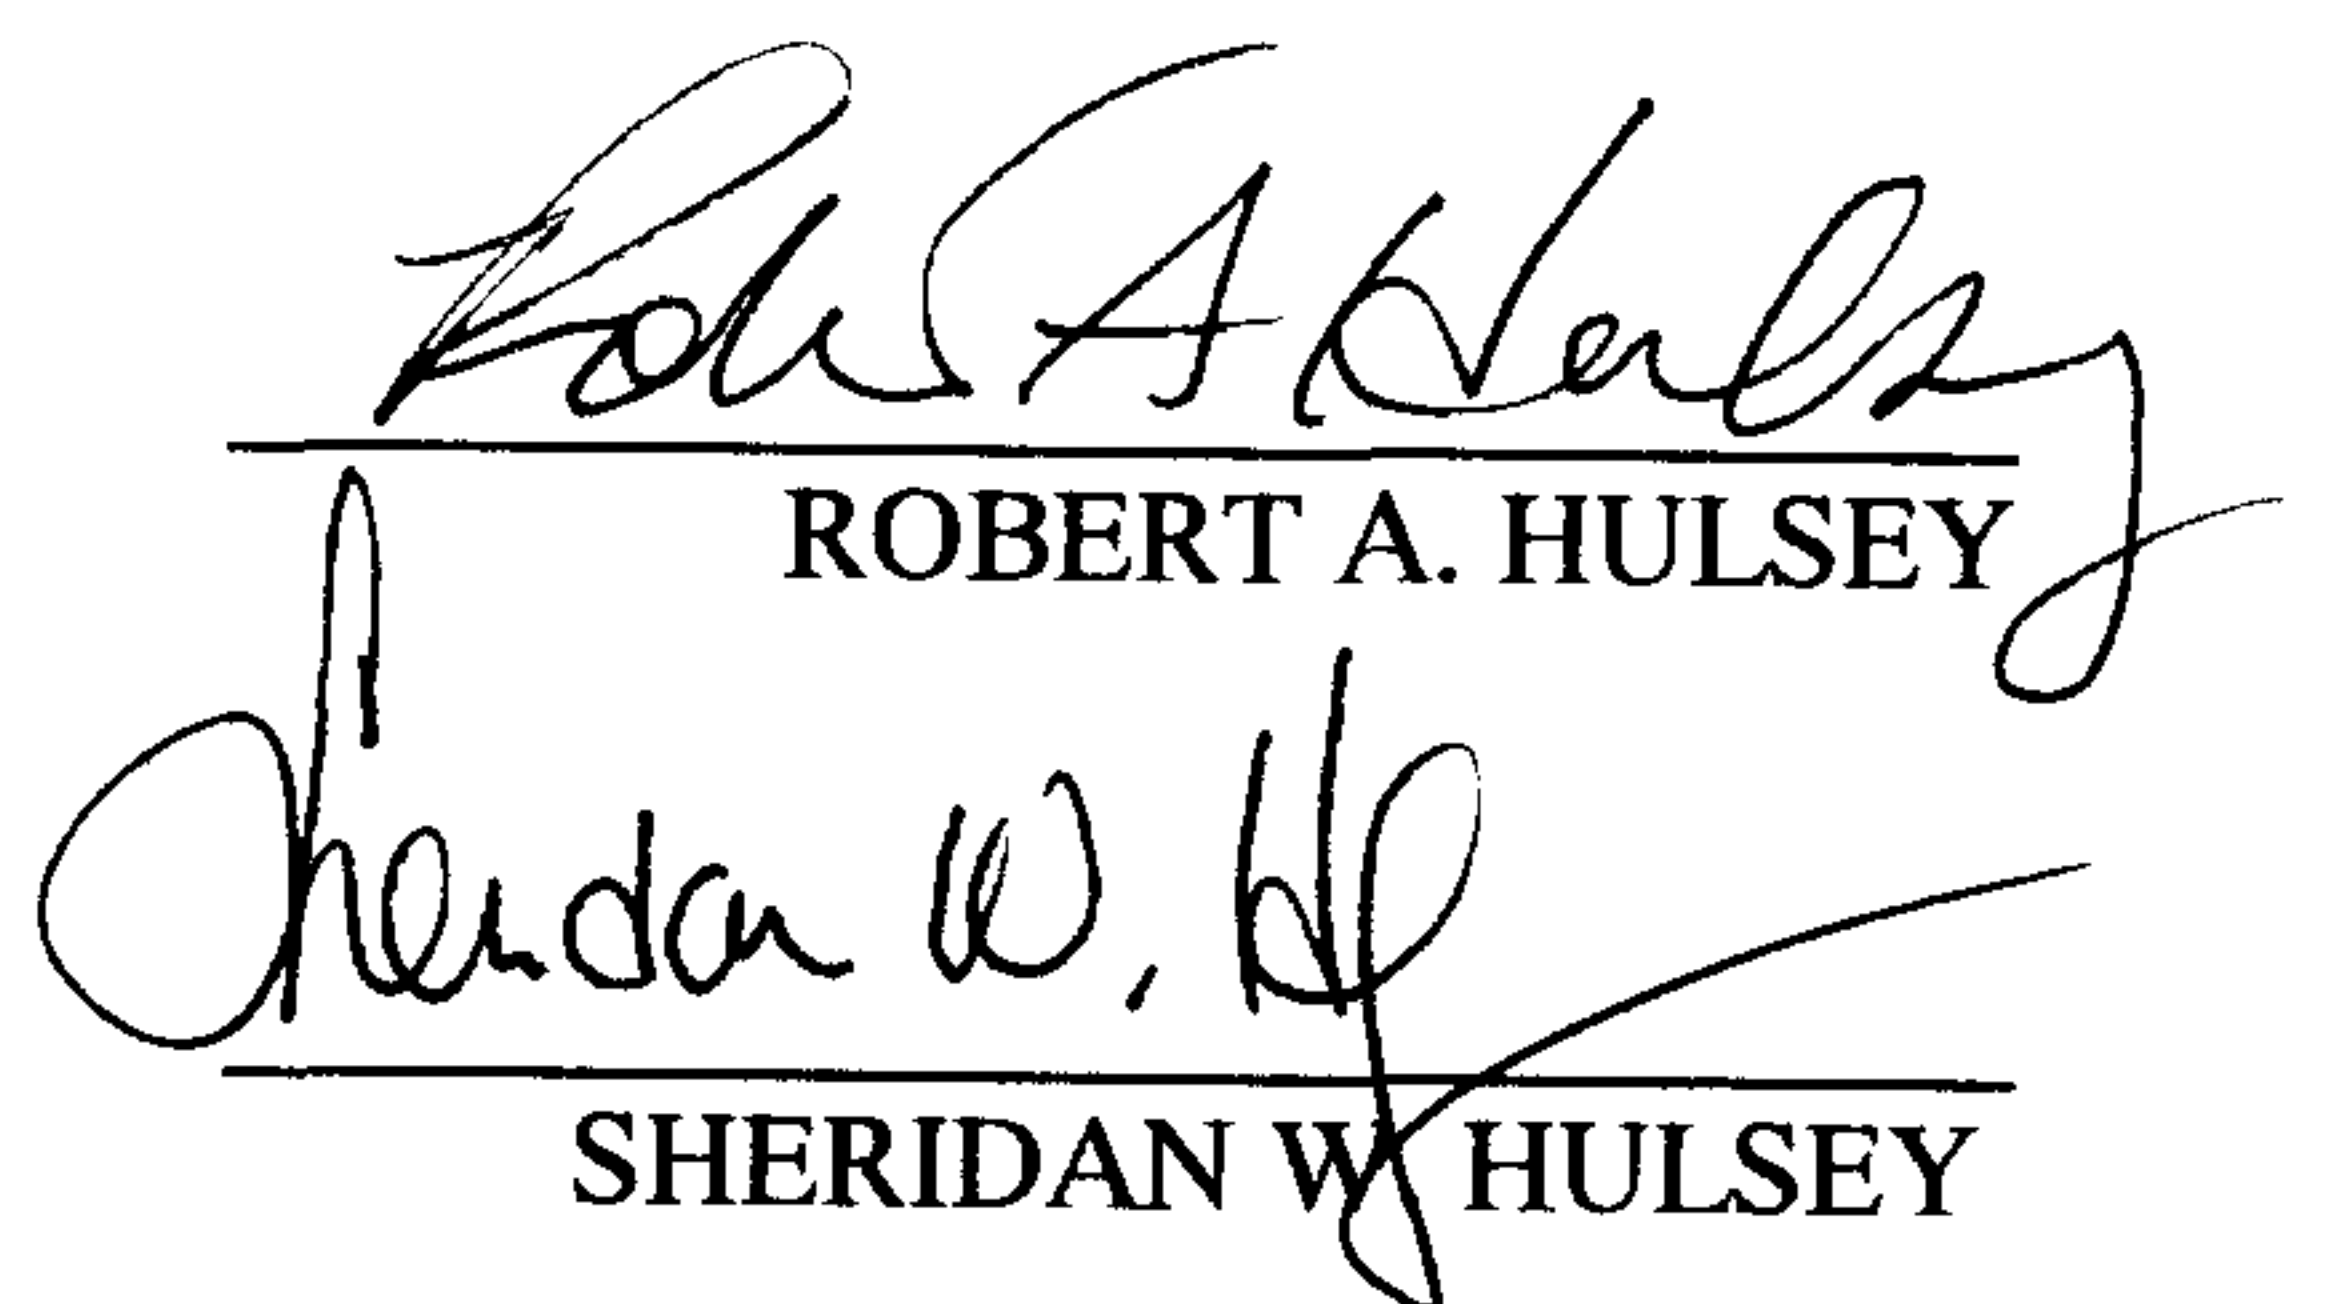 Robert A Hulsey
ROBERT A. HULSEY
Sheridan W. Hulsey
SHERIDAN W HULSEY